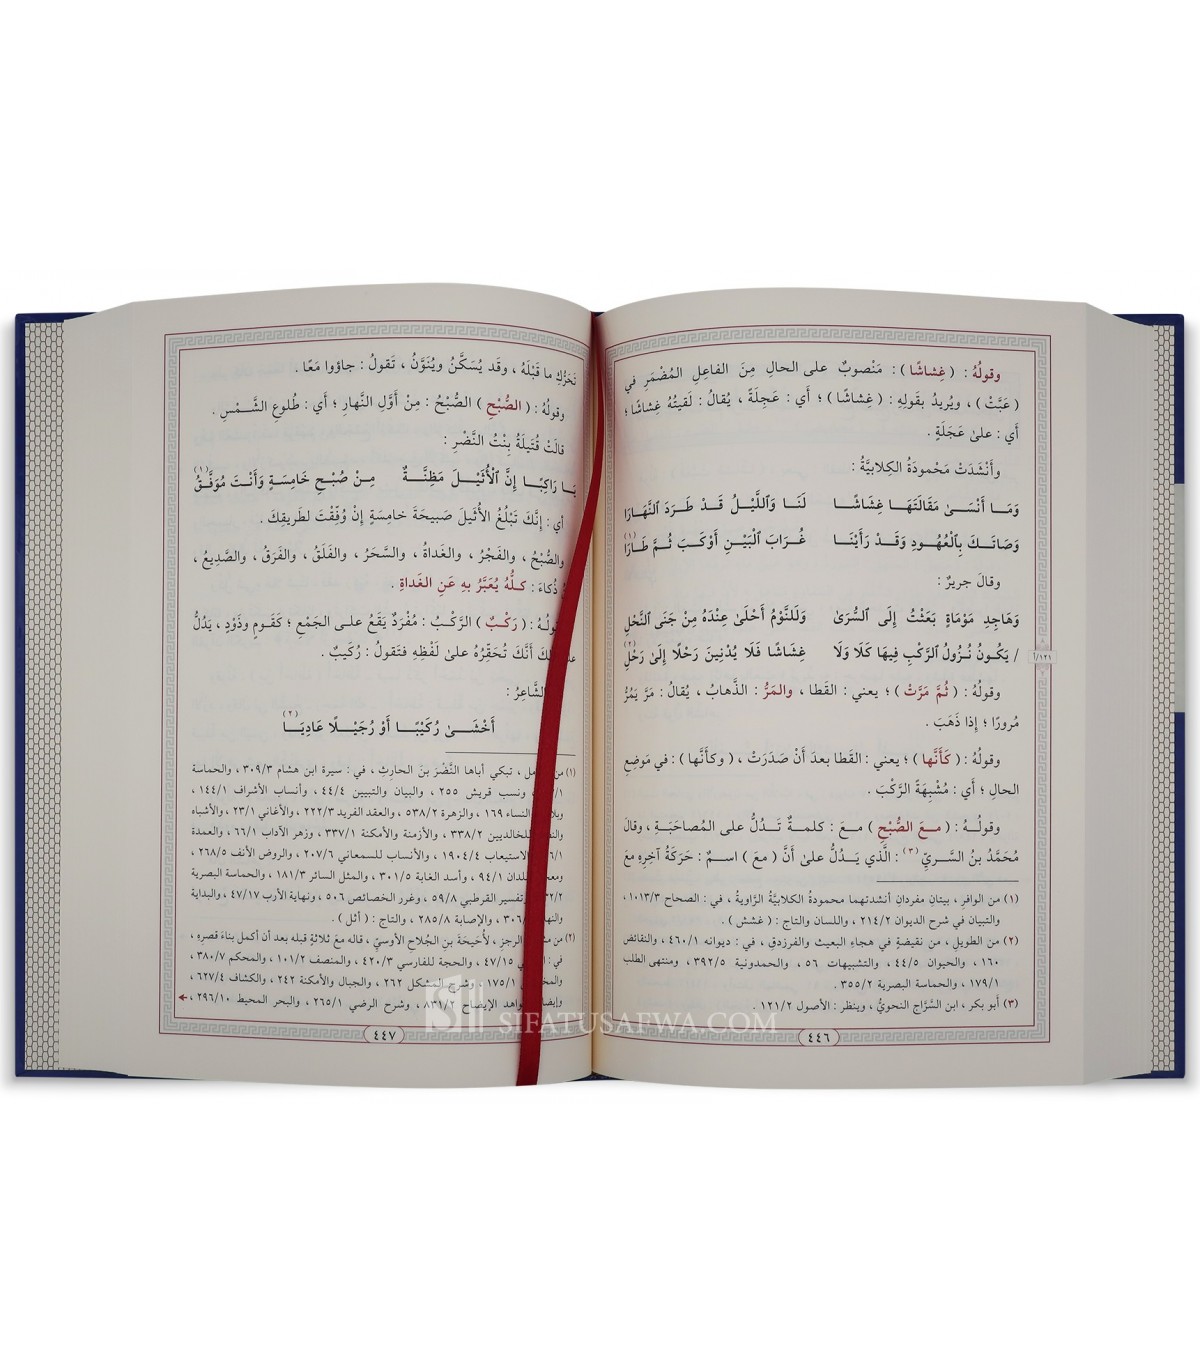 وقولُهُ : ( غِشاشًا ) : مَنْصوبٌ على الحالِ مِنَ الفاعِلِ المُضْمَرِ في
( عَبَّتْ ) ، ويُريدُ بقَولِهِ : ( غِشاشًا ) ؛ أي : عَجِلَةً ، يُقالُ : لَقيتُهُ غِشاشًا ؛
أي : على عَجَلَةٍ .
وأَنْشَدَتْ مَحْمودَةُ الكِلابيَّةُ :
وَمَا أَنْسَىٰ مَقَالَتَهَا غِشَاشًا لَنَا وَٱللَّيْلُ قَدْ طَرَدَ ٱلنَّهَارَا
وَصَاتَكَ بِٱلْعُهُودِ وَقَدْ رَأَيْنَا غُرَابَ ٱلْبَيْنِ أَوْكَبَ ثُمَّ طَارَا(١)
وقالَ جريرٌ :
وَهَاجِدِ مَوْمَاةٍ بَعَثْتُ إِلَى ٱلسُّرَىٰ وَلَلنَّوْمُ أَحْلَىٰ عِنْدَهُ مِنْ جَنَى ٱلنَّحْلِ
١٢١/أ
/ يَكُونُ نُزُولُ ٱلرَّكْبِ فِيهَا كَلَا وَلَا غِشَاشًا فَلَا يُدْنِينَ رَحْلًا إِلَىٰ رَحْلِ(٢)
وقولُهُ : ( ثُمَّ مَرَّتْ ) ؛ يعني : القَطا ، والمَرُّ : الذَّهابُ ، يُقالُ : مَرَّ يَمُرُّ
مُرورًا ؛ إذا ذَهَبَ .
وقولُهُ : ( كَأَنَّها ) ؛ يعني : القَطا بعدَ أَنْ صَدَرَتْ ، ( وكأَنَّها ) : في مَوضِعِ
الحالِ ؛ أي : مُشْبِهَةً الرَّكْبَ .
وقولُـهُ : ( مـعَ الصُّبْحِ ) معَ : كلمـةٌ تَـدُلُّ على المُصاحَبَـةِ ، وقالَ
مُحَمَّدُ بنُ السَّريِّ (٣) : الَّذي يَـدُلُّ علىٰ أَنَّ ( معَ ) اسمٌ : حَرَكَةُ آخِرِهِ معَ
(١) من الوافر ، بيتانِ مفردانِ أنشدتهما محمودةُ الكلابيَّةُ الرَّاويةُ ، في : الصحاح ١٠١٣/٣ ،
والتبيان في شرح الديوان ٢١٤/٢ ، واللسان والتاج : ( غشش ) .
(٢) من الطويل ، من نقيضةٍ في هجاءِ البعيث والفرزدقِ ، في : ديوانه ٤٦٠/١ ، والنقائض
١٦٠ ، والحيوان ٤٤/٥ ، والتشبيهات ٥٦ ، والحمدونية ٣٩٢/٥ ، ومنتهى الطلب
١٧٩/١ ، والحماسة البصرية ٣٥٥/٢ .
(٣) أبو بكر ، ابن السَّرَّاج النحويُّ ، وينظر : الأصول ١٢١/٢ .
٤٤٦
تَحَرُّكِ ما قَبْلَهُ ، وقَد يُسَكَّنُ ويُنَوَّنُ ، تَقولُ : جاؤوا مَعًا .
وقولُهُ : ( الصُّبْحِ ) الصُّبْحُ : مِنْ أَوَّلِ النَّهارِ ؛ أي : طُلوعِ الشَّـمْسِ .
قالَتْ قُتَيلَةُ بِنْتُ النَّضْرِ :
يَـا رَاكِبًـا إِنَّ ٱلْأُثَيْـلَ مَظِنَّـةٌ مِنْ صُبْحِ خَامِسَةٍ وَأَنْتَ مُوَفَّقُ(١)
أي : إِنَّكَ تَبْلُغُ الأُثَيلَ صَبيحَةَ خامِسَةٍ إِنْ وُفِّقْتَ لطَريقِكَ .
والصُّبْحُ ، والفَجْرُ ، والغَداةُ ، والسَّحَرُ ، والفَلَقُ ، والفَرَقُ ، والصَّديعُ ،
ذُكاءَ : كلُّهُ يُعَبَّرُ بهِ عَنِ الغَداةِ .
قولُهُ : ( رَكْبٌ ) الرَّكْبُ : مُفْرَدٌ يَقَعُ على الجَمْعِ ؛ كقَومٍ وذَوْدٍ ، يَدُلُّ
أَنَّكَ تُحَقِّرُهُ علىٰ لَفْظِهِ فتَقولُ : رُكَيبٌ .
الشَّاعِرُ :
أَخْشَـىٰ رُكَيْبًـا أَوْ رُجَيْـلًا عَادِيَـا(٢)
(١) من ، تبكي أباها النَّضْرَ بنَ الحارثِ ، في : سيرة ابن هشام ٣٠٩/٣ ، والحماسة
ونسب قريش ٢٥٥ ، والبيان والتبيين ٤٤/٤ ، وأنساب الأشراف ١٤٤/١ ،
النساء ١٦٩ ، والزهرة ٥٣٨/٢ ، والعقد الفريد ٢٢٢/٣ ، والأغاني ٢٣/١ ، والأشباه
للخالديين ٣٣٨/٢ ، والأزمنة والأمكنة ٣٣٧/١ ، وزهر الآداب ٦٦/١ ، والعمدة
الاستيعاب ١٩٠٤/٤ ، والأنساب للسمعاني ٢٠٧/٦ ، والروض الأنف ٢٦٨/٥ ،
٩٤/١ ، وأسد الغابة ٣٠١/٥ ، والمثل السائر ١٨١/٣ ، والحماسة البصرية
وتفسير القرطبي ٥٩/٨ ، وغرر الخصائص ٥٠٦ ، ونهاية الأرب ٤٧/١٧ ، والبداية
والإصابة ٢٨٥/٨ ، والتاج : ( أثل ) .
(٢) من الرجز ، لأُحَيحَةَ بنِ الجُلاحِ الأوسيِّ ، قاله معَ ثلاثةٍ قبله بعد أن أكمل بناءَ قصره ،
في : ٤٧/١٥ ، والحجة للفارسي ٤٢٠/٣ ، والمنصف ١٠١/٢ ، والمحكم ٣٨٠/٧ ،
١٧٥/١ ، وشرح المشكل ٢٦٢ ، والجبال والأمكنة ٢٤٢ ، والكشاف ٦٢٧/٤ ،
الإيضاح ٨٣١/٢ ، وشرح الرضي ٢٦٥/١ ، والبحر المحيط ٢٩٦/١٠ ،
٤٤٧
SIFATUSAFWA.COM